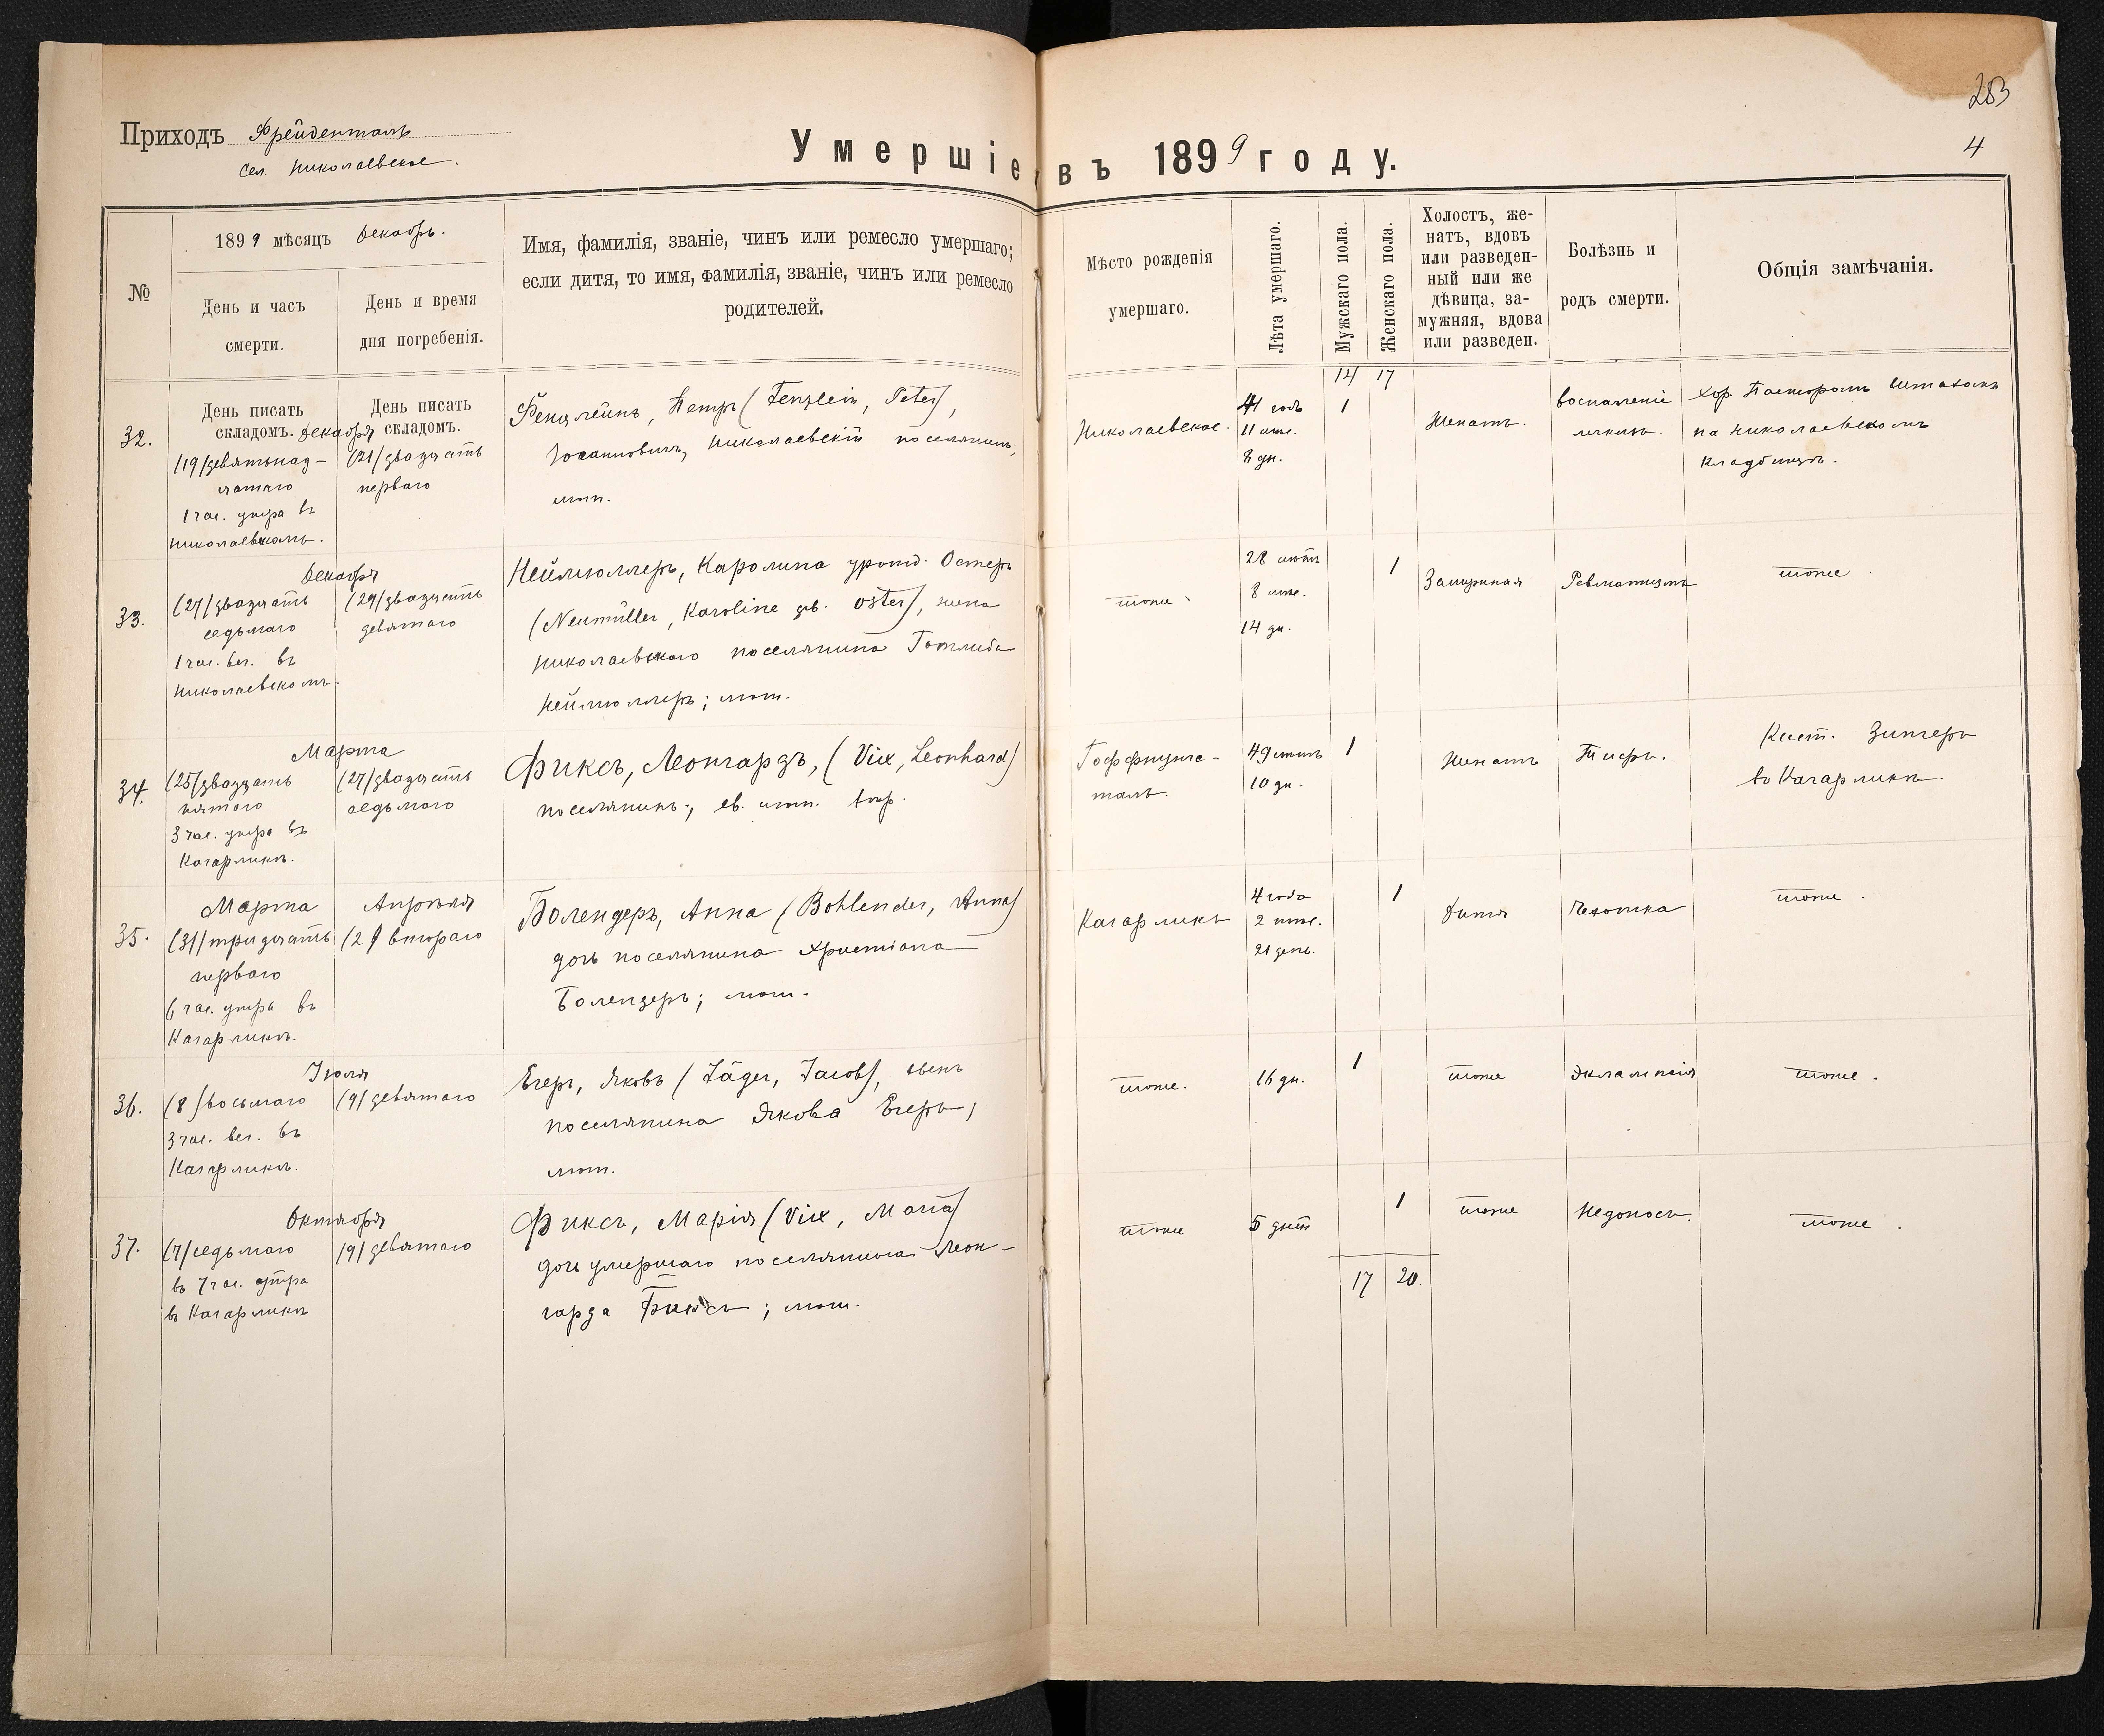 283
4
Приходъ Фрейденталь
Сел. Николаевское.
Умершіе въ 1899 году.
№
1899 мѣсяцъ Декабрь.
День и часъ
смерти.
День и время
дня погребенія.
Имя, фамилія, званіе, чинъ или ремесло умершаго;
если дитя, то имя, фамилія, званіе, чинъ или ремесло
родителей.
Мѣсто рожденія
умершаго.
Лѣта умершаго.
Мужскаго пола.
Женскаго пола.
Холостъ, же-
натъ, вдовъ
или разведен-
ный или же
дѣвица, за-
мужняя, вдова
или разведен.
Болѣзнь и
родъ смерти.
Общія замѣчанія.
14 17
32.
День писать
складомъ.
День писать
складомъ.
Декабря
(19) девятнад-
цатаго
1 час. утра въ
Николаевскомъ.
(21) двадцать
перваго
Фенцлейнъ, Петръ (Fenzlein, Peter),
Іоганновичъ, Николаевскій поселянинъ;
лют.
Николаевское.
41 годъ
11 мѣс.
8 дн.
1
Женатъ.
воспаленіе
легкихъ.
хор. Пасторомъ
на Николаевскомъ
кладбищѣ.
33.
Декабря
(27) двадцать
седьмаго
1 час. веч. въ
Николаевскомъ.
(29) двадцать
девятаго
Неймюллеръ, Каролина урожд. Остеръ
(Neumüller, Karoline gb. Oster), жена
Николаевскаго поселянина Готлиба
Неймюллеръ; лют.
тоже
28 лѣтъ
8 мѣс.
14 дн.
1
Замужняя
Ревматизмъ
тоже.
34.
Марта
(25) двадцать
пятаго
3 час. утра въ
Кагарликѣ.
(27) двадцать
седьмаго
Фиксъ, Леонгардъ, (Vix, Leonhard)
поселянинъ; ев. лют.
Гоффнунгс-
таль.
49 лѣтъ
10 дн.
1
Женатъ
Тифъ.
Кист. Зингеръ
въ Кагарликѣ.
35.
Марта
(31) тридцать
перваго
6 час. утра въ
Кагарликѣ.
Апрѣля
(2) втораго
Болендеръ, Анна (Bohlender, Anna)
дочь поселянина Христіана
Болендеръ; лют.
Кагарликъ
4 года
2 мѣс.
21 день.
1
Дитя
Чахотка
тоже.
36.
Іюля
(8) восьмаго
3 час. веч. въ
Кагарликѣ.
(9) девятаго
Егеръ, Яковъ (Jäger, Jacob), сынъ
поселянина Якова Егеръ;
лют.
тоже.
16 дн.
1
тоже
Эклампсія
тоже.
37.
Октября
(7) седьмаго
въ 7 час. утра
въ Кагарликѣ
(9) девятаго
Фиксъ, Марія (Vix, Maria)
дочь умершаго поселянина Леон-
гарда Фиксъ; лют.
тоже
5 дней
1
тоже
Недоносъ.
тоже.
17 20.